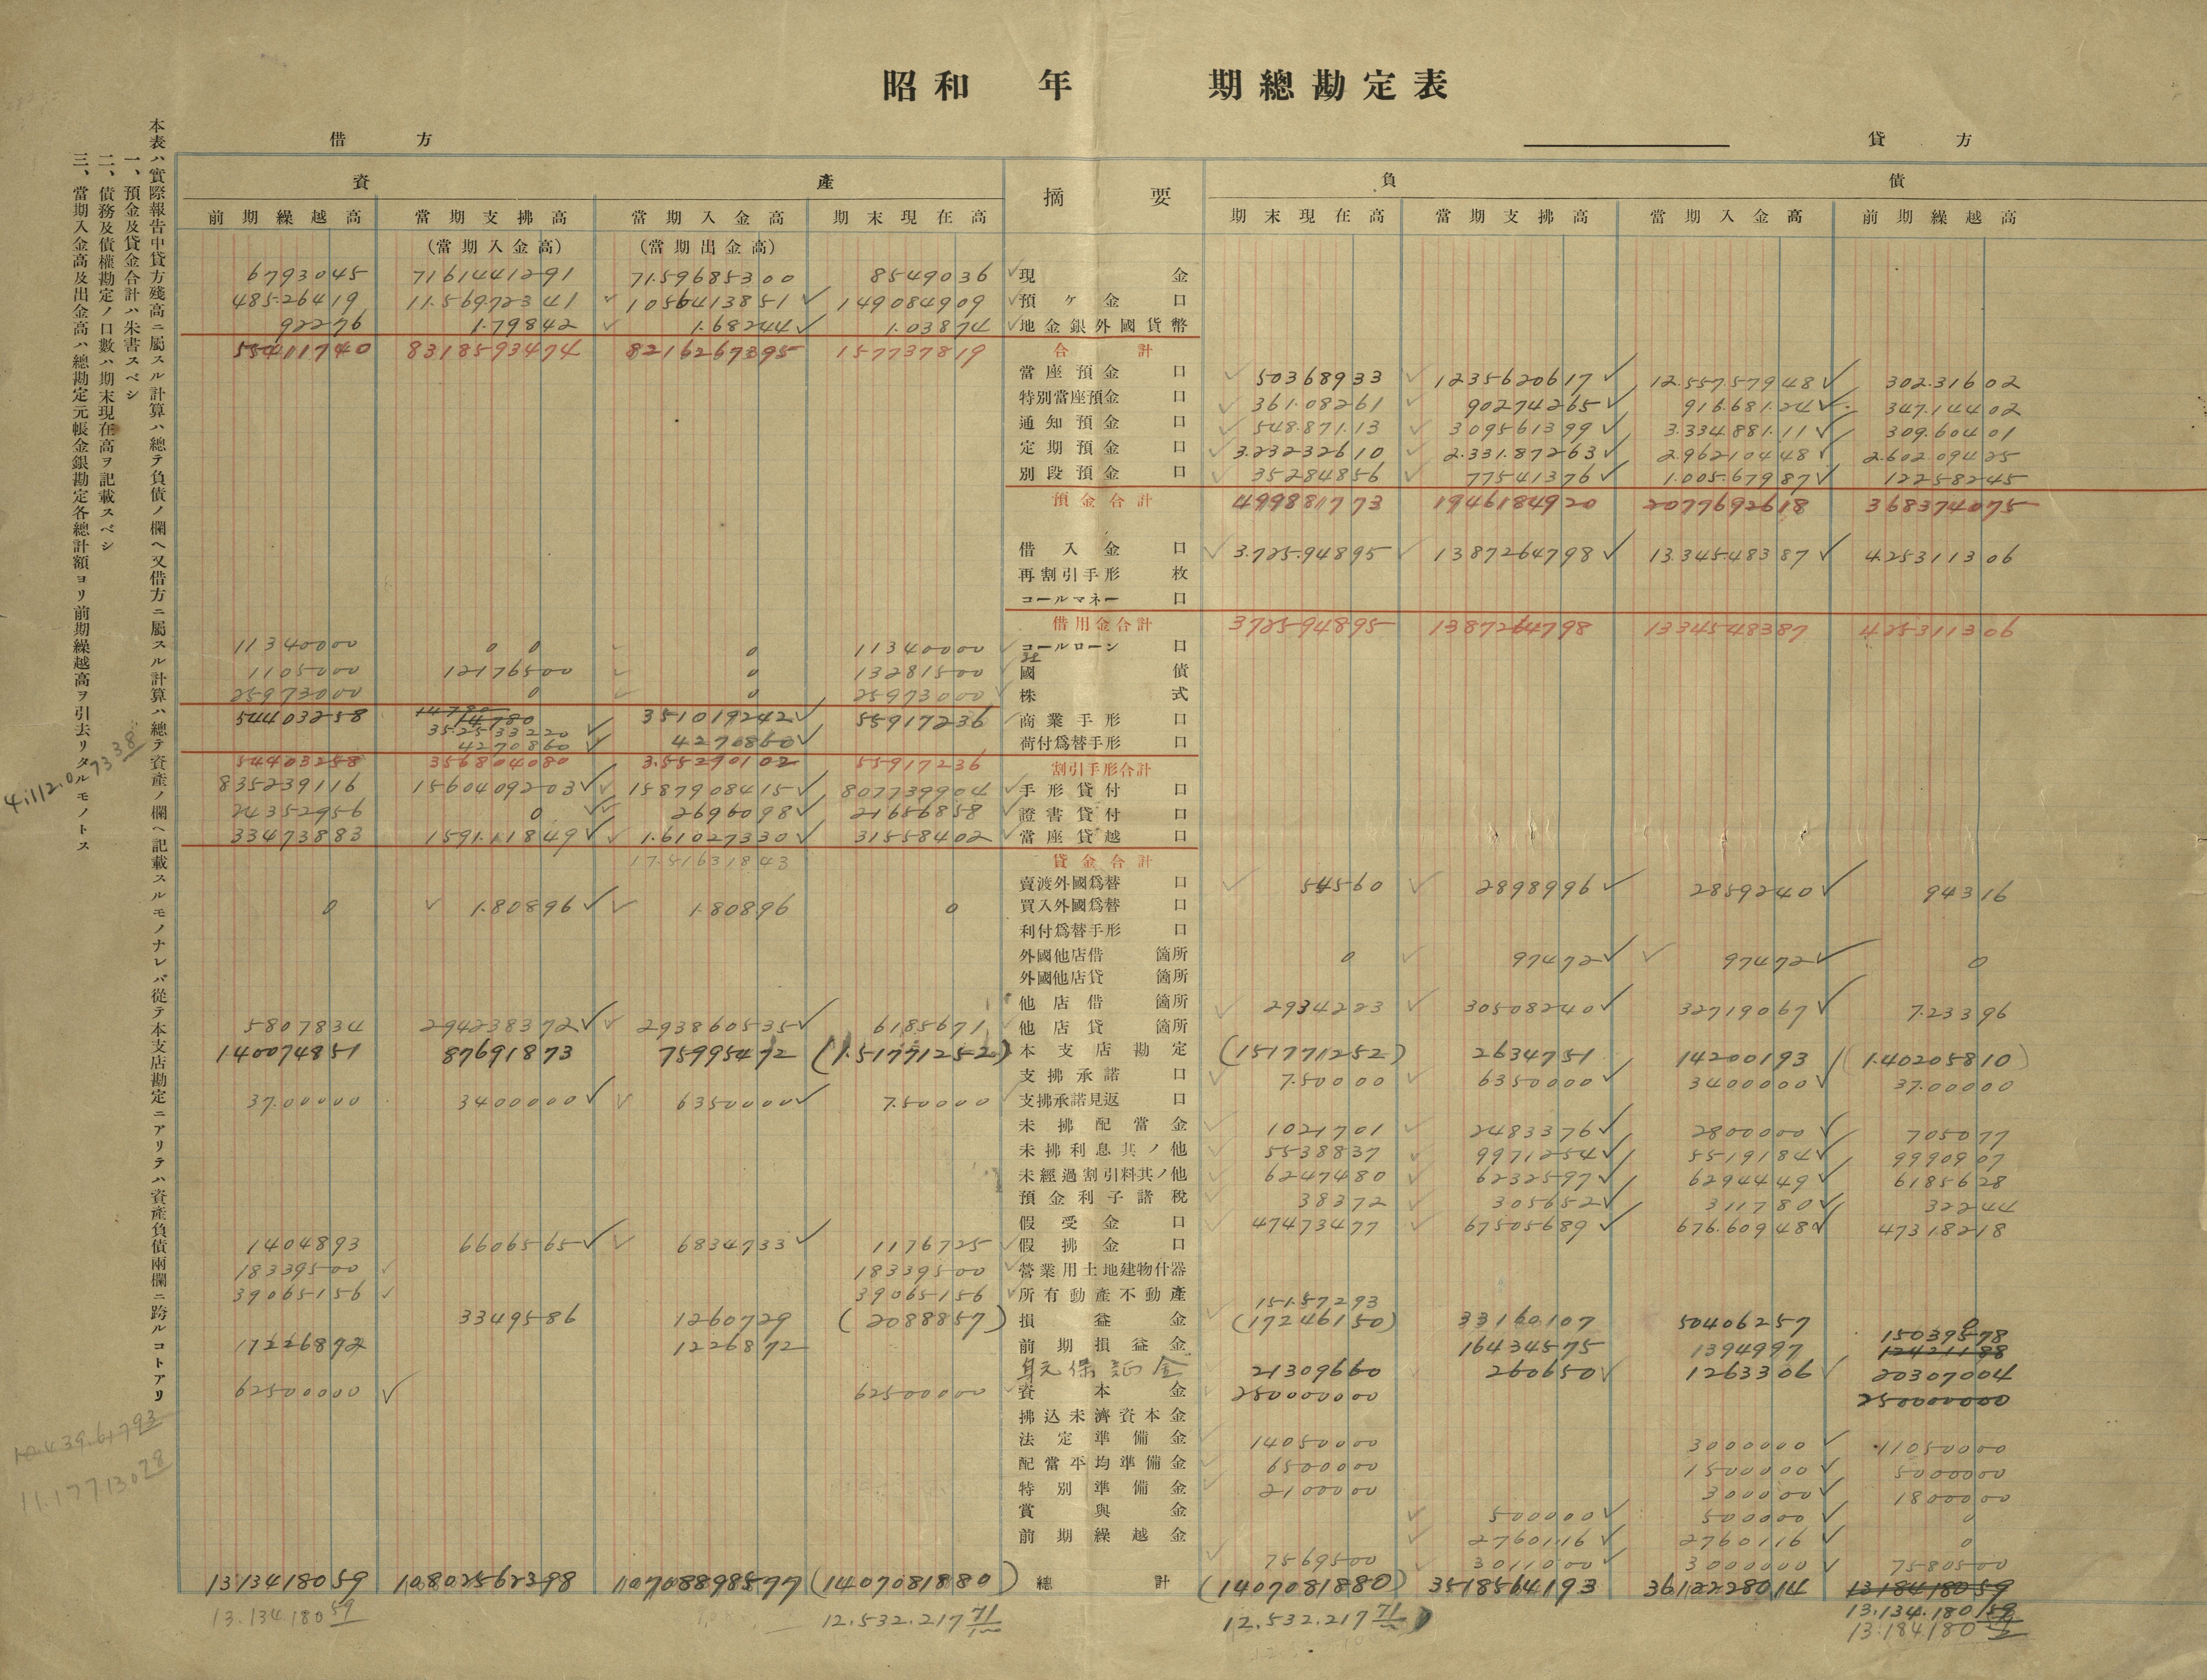 昭和 年 期總勘定表
借方 貸方
本表ハ實際報告中貸方殘高ニ屬スル計算ハ總テ負債ノ欄ヘ又借方ニ屬スル計算ハ總テ資產ノ欄ヘ記載スルモノナレバ從テ本支店勘定ニアリテハ資產負債兩欄ニ跨ルコトアリ
一、預金及貸金合計ハ朱書スベシ
二、債務及債權勘定ノ口數ハ期末現在高ヲ記載スベシ
三、當期入金高及出金高ハ總勘定元帳金銀勘定各總計額ヨリ前期繰越高ヲ引去リタルモノトス
資產 摘要 負債
前期繰越高 當期支拂高 當期入金高 期末現在高 期末現在高 當期支拂高 當期入金高 前期繰越高
(當期入金高) (當期出金高)
6793045 7161441291 71.59685300 8549036 現金
48526419 11.56972341 1056413851 149084909 預ケ金 口
92276 1.79842 1.68244 1.03874 地金銀外國貨幣
55411740 8318593474 8216267395 157737819 合計
當座預金 口 50368933 1235620617 12.557.57948 302.31602
特別當座預金 口 361.08261 90274265 916.681.24 347.14402
通知預金 口 548.871.13 309561399 3.334.881.11 309.60401
定期預金 口 3.23232610 2.331.87263 2.96210448 2.602.09425
別段預金 口 35284856 77541376 1.005.67987 12258245
預金合計 499881773 1946184920 2077692618 368374075
借入金 口 3.725.94895 1387264798 13.345.48387 4.25311306
再割引手形 枚
コールマネー 口
借用金合計 372594895 1387264798 1334548387 425311306
11340000 0 0 0 11340000 コールローン 口
1105000 12176500 0 13281500 國債
25973000 0 0 25973000 株式
54403258 14780 352533220 351019242 55917236 商業手形 口
4270860 4270860 荷付爲替手形 口
54403258 356804080 3.55290102 55917236 割引手形合計
835239116 1560409203 1587908415 807739904 手形貸付 口
24352956 0 2696098 21656858 證書貸付 口
33473883 1591.11849 1.61027330 31558402 當座貸越 口
17.51631843 貸金合計
賣渡外國爲替 口 54560 2898996 2859240 94316
0 1.80896 1.80896 0 買入外國爲替 口
利付爲替手形 口
外國他店借 箇所 0 97472 97472 0
外國他店貸 箇所
他店借 箇所 2934223 30508240 32719067 7.23396
5807834 294238372 293860535 6185671 他店貸 箇所
140074851 87691873 75995472 (1.51771252) 本支店勘定 (151771252) 2634751 14200193 (1.40205810)
支拂承諾 口 7.50000 6350000 3400000 37.00000
37.00000 3400000 6350000 7.50000 支拂承諾見返 口
未拂配當金 1021701 2483376 2800000 705077
未拂利息其ノ他 5538837 9971254 5519184 9990907
未經過割引料其ノ他 6247480 6232597 6294449 6185628
預金利子諸稅 38372 305652 311780 32244
假受金 口 47473477 67505689 676.60948 47318218
1404893 6606565 6834733 1176725 假拂金 口
18339500 18339500 營業用土地建物什器
39065156 39065156 所有動產不動產
15157293
3349586 1260729 (2088857) 損益金 (17246150) 33160107 50406257 0
17226892 1226872 前期損益金 16434575 1394997 15039578 12421188
身元保証金 21309660 260650 1263306 20307004
62500000 62500000 資本金 250000000 250000000
拂込未濟資本金
法定準備金 14050000 3000000 11050000
配當平均準備金 6500000 1500000 5000000
特別準備金 2100000 300000 1800000
賞與金 500000 500000 0
前期繰越金 2760116 2760116 0
7569500 3011000 3000000 7580500
1313418059 10802562398 10708898577 (1407081880) 總計 (1407081880) 3518564193 3612228014 1318418059
13.134.18059 12.532.21771 12.532.21771 13.134.18059
13.184.180
4.112.07338
10.439.61793
11.17713078